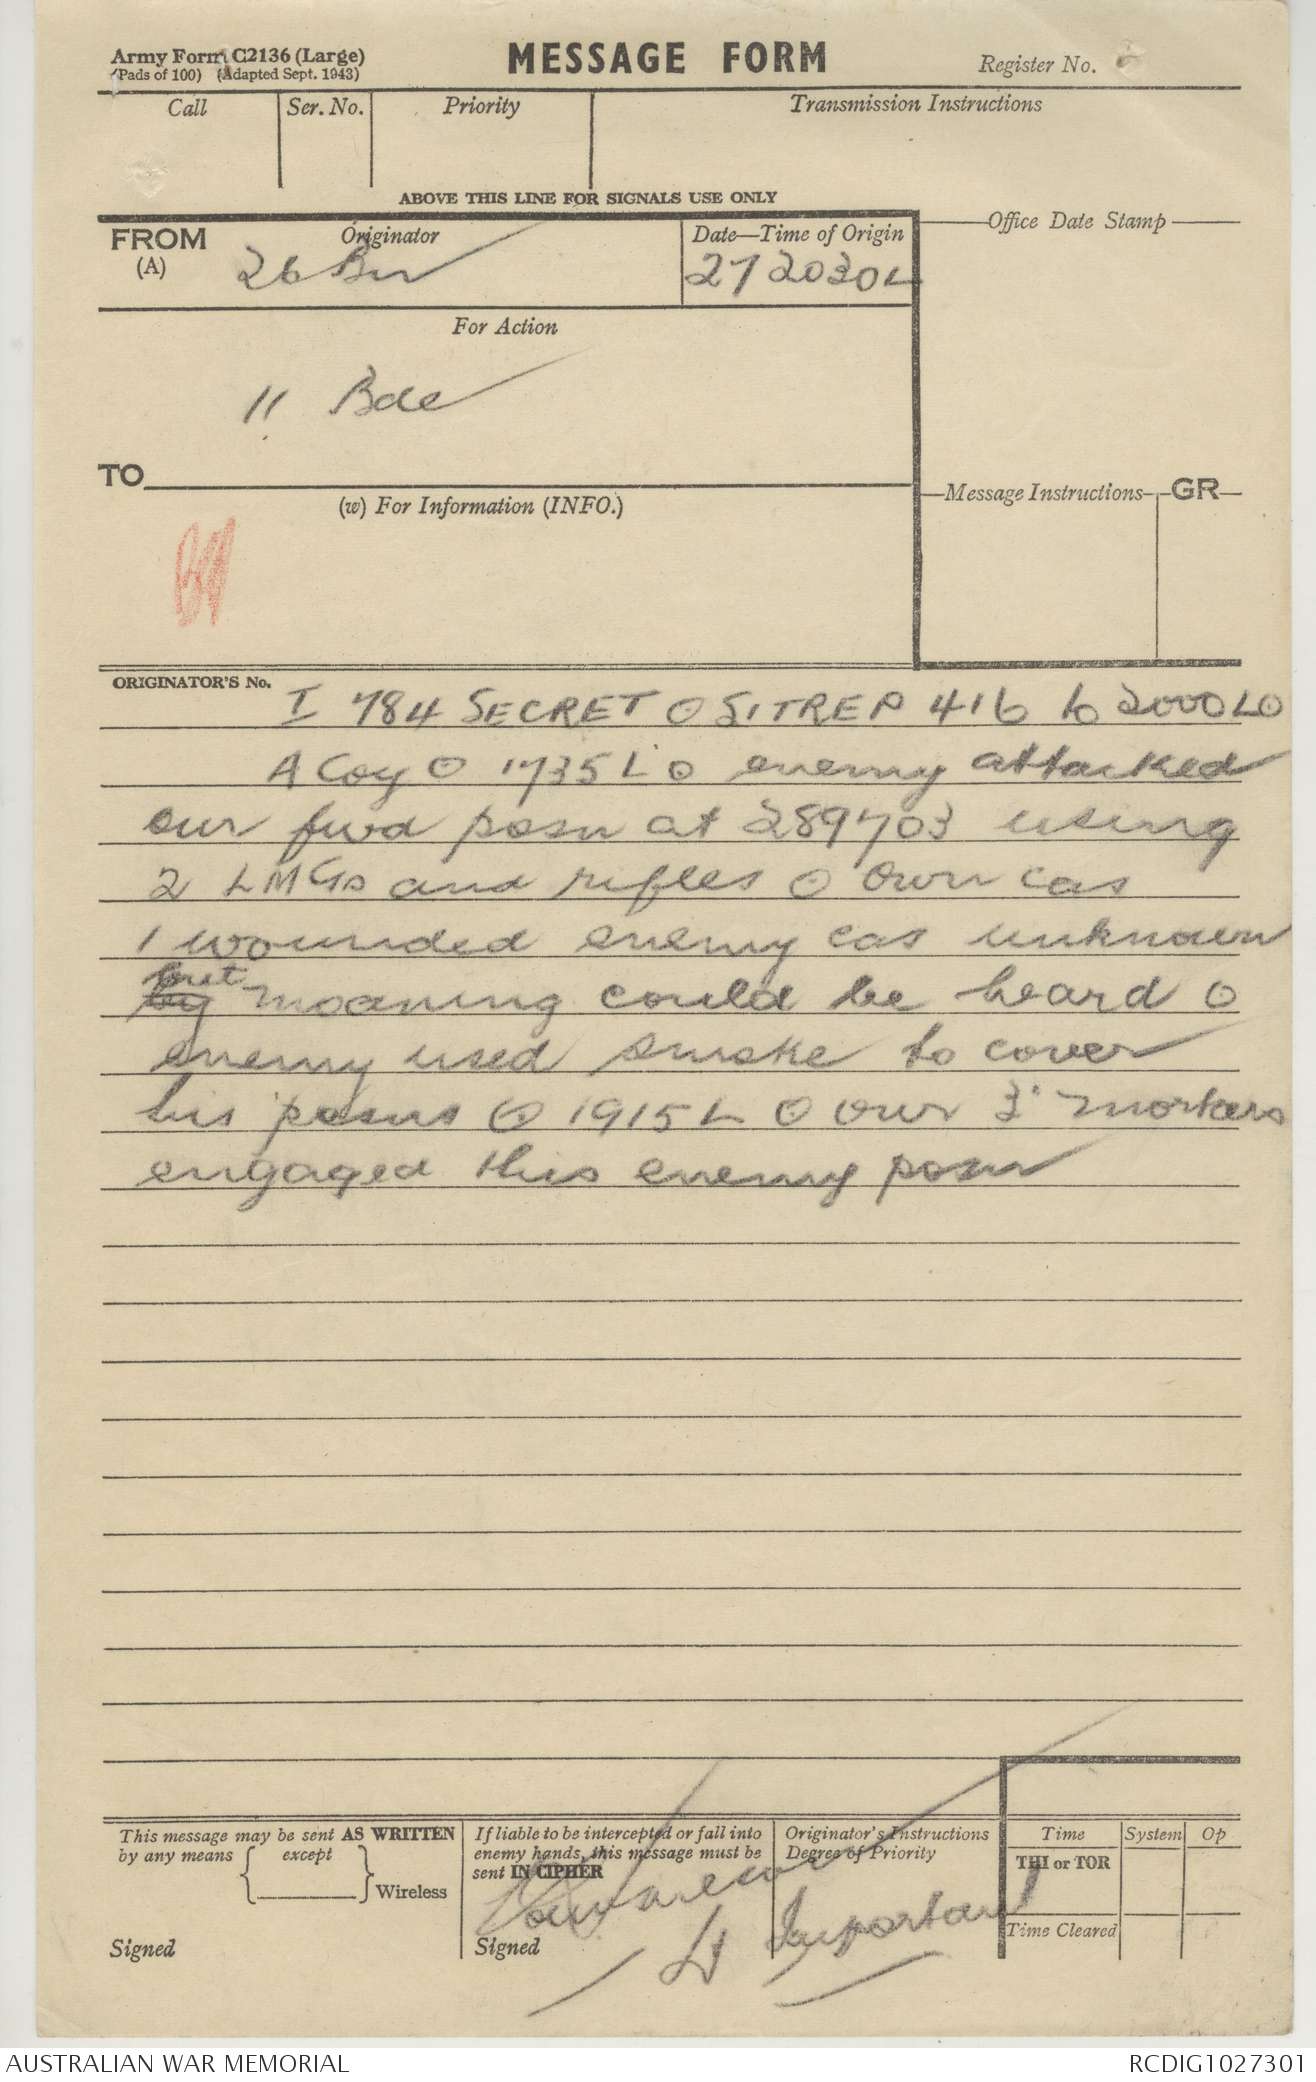 Army Form C2136 (Large)
(Pads of 100) (Adapted Sept. 1943)
MESSAGE FORM
Register No.
Call
Ser. No.
Priority
Transmission Instructions
ABOVE THIS LINE FOR SIGNALS USE ONLY
FROM
(A)
Originator
26 Bn
Date—Time of Origin
272030L
Office Date Stamp
For Action
11 Bde
TO
(w) For Information (INFO.)
Message Instructions
GR
ORIGINATOR'S No.
I 784 SECRET ⊙ SITREP 416 to 2000L⊙
A Coy ⊙ 1735L ⊙ enemy attacked
our fwd posn at 289703 using
2 LMGs and rifles ⊙ Own cas
1 wounded enemy cas unknown
but
moaning could be heard ⊙
enemy used smoke to cover
his posns ⊙ 1915L ⊙ our 3" mortars
engaged this enemy posn
This message may be sent AS WRITTEN
by any means { except }
Wireless
Signed
If liable to be intercepted or fall into
enemy hands, this message must be
sent IN CIPHER
Signed
Lt
Originator's Instructions
Degree of Priority
Important
Time
System
Op
THI or TOR
Time Cleared
AUSTRALIAN WAR MEMORIAL
RCDIG1027301